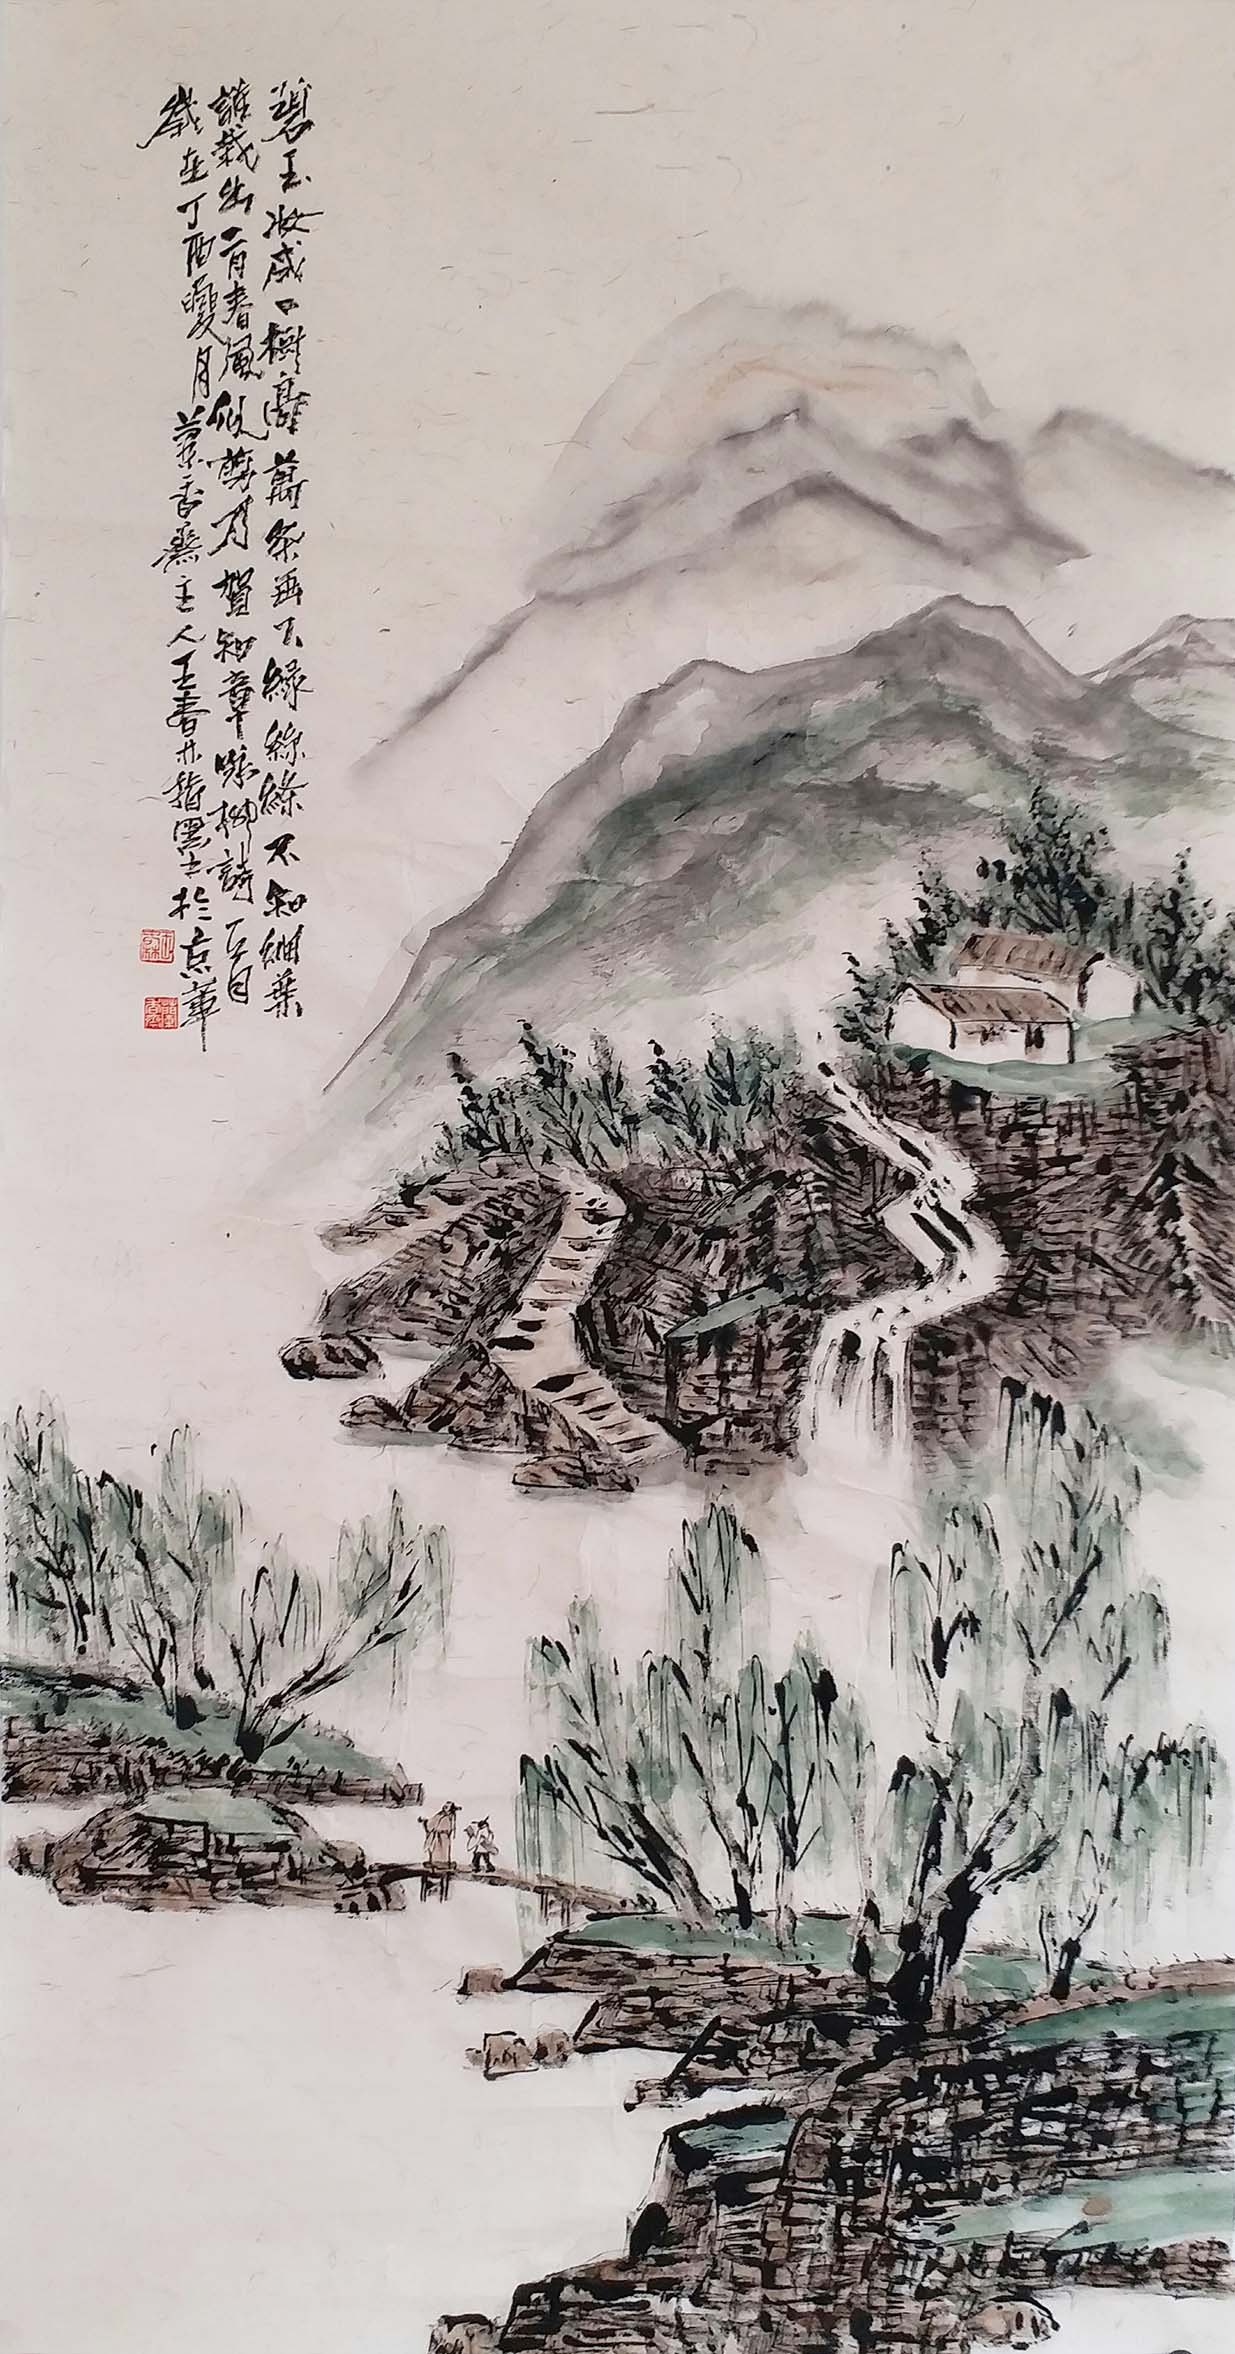 碧玉妆成一樹高萬条垂下緑絲縧不知細葉
誰裁出二月春風似剪刀賀知章咏柳詩一首
歲在丁酉夏月蘭香齋主人王春林指墨於京華